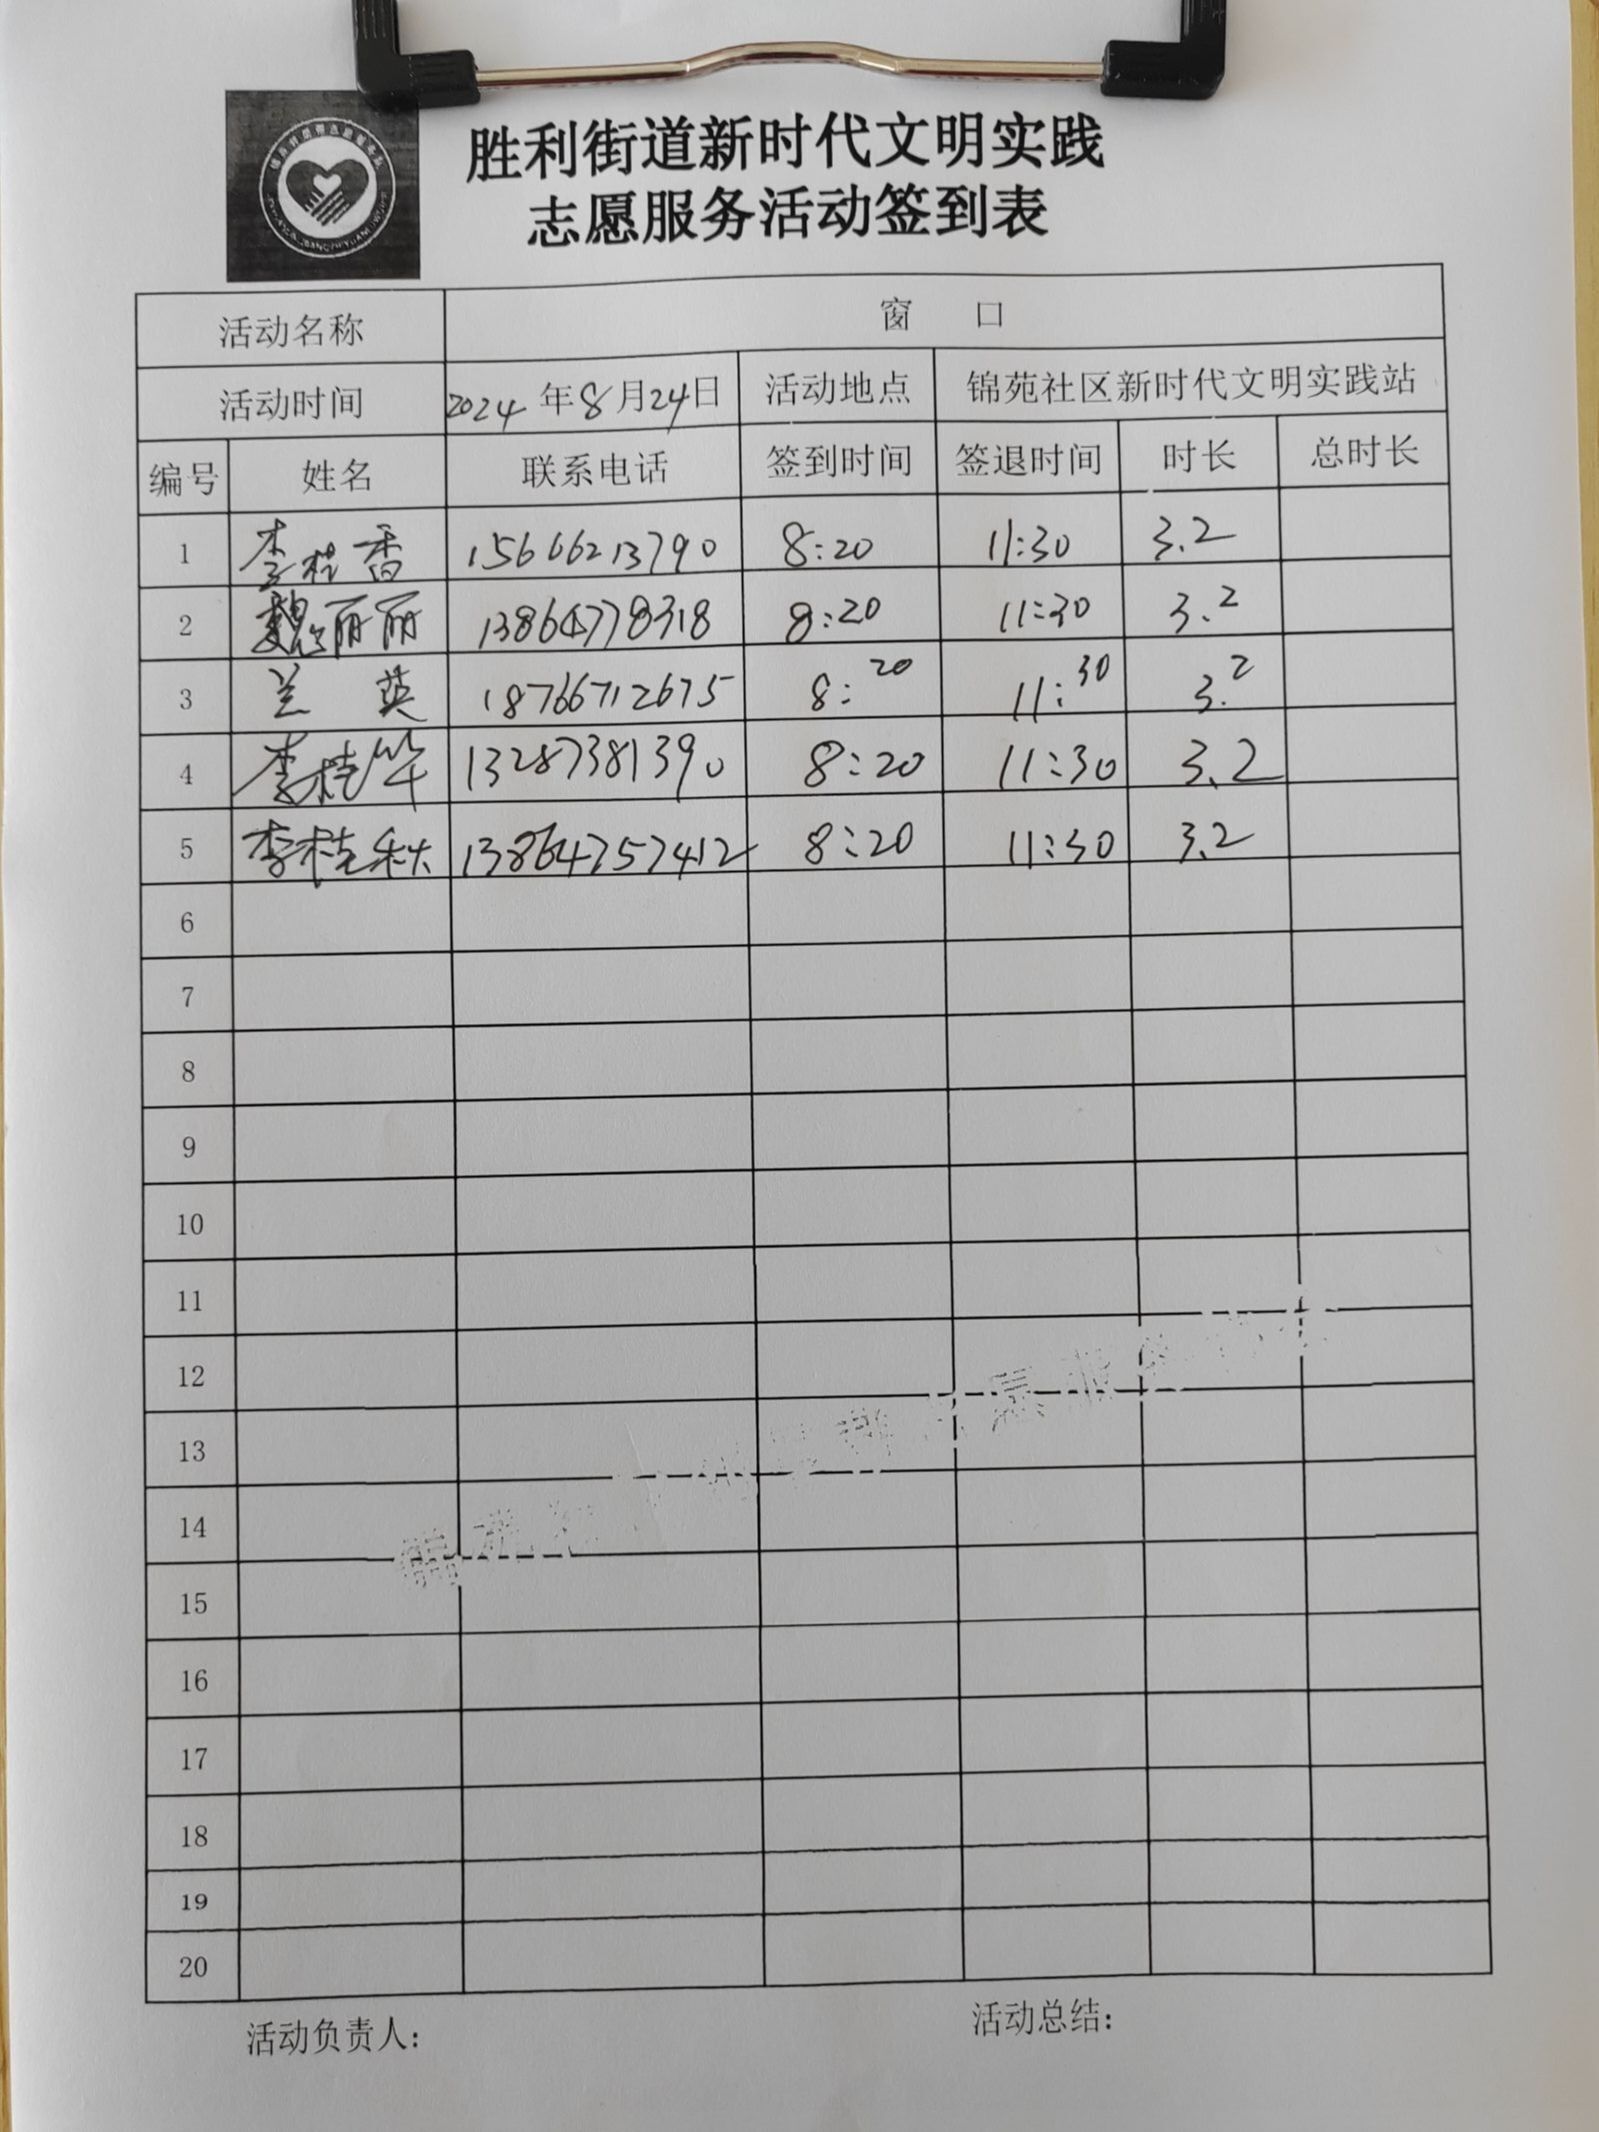 胜利街道新时代文明实践
志愿服务活动签到表
活动名称 窗 口
活动时间 2024年8月24日 活动地点 锦苑社区新时代文明实践站
编号 姓名 联系电话 签到时间 签退时间 时长 总时长
1 李桂香 15666213790 8:20 11:30 3.2
2 魏丽丽 13864778318 8:20 11:30 3.2
3 兰英 18766712675 8:20 11:30 3.2
4 李桂华 13287381390 8:20 11:30 3.2
5 李桂秋 13864757412 8:20 11:30 3.2
6
7
8
9
10
11
12
13
14
15
16
17
18
19
20
活动负责人: 活动总结: